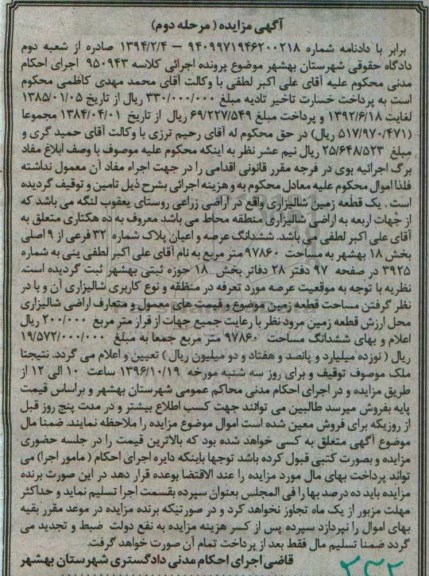 آگهی مزایده (مرحله دوم)
برابر با دادنامه شماره ۹۴۰۹۹۷۱۹۴۶۲۰۰۲۱۸ – ۱۳۹۴/۲/۴ صادره از شعبه دوم
دادگاه حقوقی شهرستان بهشهر موضوع پرونده اجرائی کلاسه ۹۵۰۹۴۳ اجرای احکام
مدنی محکوم علیه آقای علی اکبر لطفی با وکالت آقای محمد مهدی کاظمی محکوم
است به پرداخت خسارت تاخیر تادیه مبلغ ۳۳۰/۰۰۰/۰۰۰ ریال از تاریخ ۱۳۸۵/۰۱/۰۵
لغایت ۱۳۹۲/۶/۱۸ و پرداخت مبلغ ۶۹/۲۲۷/۵۴۹ ریال از تاریخ ۱۳۸۴/۰۴/۰۱ مجموعا
(۵۱۷/۹۷۰/۴۷۱ ریال) در حق محکوم له آقای رحیم ترزی با وکالت آقای حمید گری و
مبلغ ۲۵/۶۴۸/۵۲۳ ریال نیم عشر نظر به اینکه محکوم علیه موصوف با وصف ابلاغ مفاد
برگ اجرائیه بوی در فرجه مقرر قانونی اقدامی را در جهت اجراء مفاد آن معمول نداشته
فلذا اموال محکوم علیه معادل محکوم به و هزینه اجرائی بشرح ذیل تامین و توقیف گردیده
است. یک قطعه زمین شالیزاری واقع در اراضی زراعی روستای یعقوب لنگه می باشد که
از جهات اربعه به اراضی شالیزاری منطقه محاط می باشد معروف به ده هکتاری متعلق به
آقای علی اکبر لطفی می باشد. ششدانگ عرصه و اعیان پلاک شماره ۳۲ فرعی از ۹ اصلی
بخش ۱۸ بهشهر به مساحت ۹۷۸۶۰ متر مربع به نام آقای علی اکبر لطفی ینی به شماره
۳۹۲۵ در صفحه ۹۷ دفتر ۲۸ دفاتر بخش ۱۸ حوزه ثبتی بهشهر ثبت گردیده است.
نظریه با توجه به موقعیت عرصه مورد تعرفه در منطقه و نوع کاربری شالیزاری آن و با در
نظر گرفتن مساحت قطعه زمین موضوع و قیمت های معمول و متعارف اراضی شالیزاری
محل ارزش قطعه زمین مرود نظر با رعایت جمیع جهات از قرار متر مربع ۲۰۰/۰۰۰ ریال
اعلام و بهای ششدانگ مساحت ۹۷۸۶۰ متر مربع جمعا به مبلغ ۱۹/۵۷۲/۰۰۰/۰۰۰
ریال (نوزده میلیارد و پانصد و هفتاد و دو میلیون ریال) تعیین و اعلام می گردد. نتیجتا
ملک موصوف توقیف و برای روز سه شنبه مورخه ۱۳۹۶/۱۰/۱۹ ساعت ۱۰ الی ۱۲ از
طریق مزایده و در اجرای احکام مدنی محاکم عمومی شهرستان بهشهر و براساس قیمت
پایه بفروش میرسد طالبین می توانند جهت کسب اطلاع بیشتر و در مدت پنج روز قبل
از روزیکه برای فروش معین شده است اموال موضوع مزایده را ملاحظه نمایند. ضمنا مال
موضوع آگهی متعلق به کسی خواهد شده بود که بالاترین قیمت را در جلسه حضوری
مزایده و بصورت کتبی قبول کرده باشد توجها باینکه دایره اجرای احکام (مامور اجرا) می
تواند پرداخت بهای مال مورد مزایده را عند الاقتضا بوعده قرار دهد در این صورت برنده
مزایده باید ده درصد بها را فی المجلس بعنوان سپرده بقسمت اجرا تسلیم نماید و حداکثر
مهلت مزبور از یک ماه تجاوز نخواهد کرد و در صورتیکه برنده مزایده در موعد مقرر بقیه
بهای اموال را نپردازد سپرده پس از کسر هزینه مزایده به نفع دولت ضبط و تجدید می
گردد ضمنا تسلیم مال فقط بعد از پرداخت تمام آن صورت خواهد گرفت.
قاضی اجرای احکام مدنی دادگستری شهرستان بهشهر